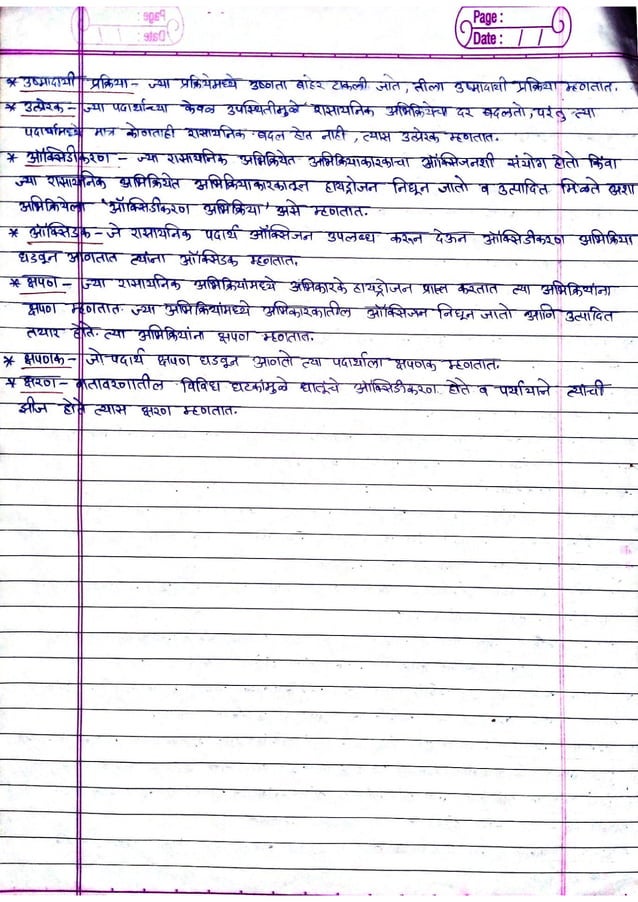 Page :
Date : / /
* उष्मादायी प्रक्रिया - ज्या प्रक्रियेमध्ये उष्णता बाहेर टाकली जाते, तीला उष्मादायी प्रक्रिया म्हणतात.
* उत्प्रेरक - ज्या पदार्थाच्या केवळ उपस्थितीमुळे रासायनिक अभिक्रियेचा दर बदलतो, परंतु त्या
पदार्थामध्ये मात्र कोणताही रासायनिक बदल होत नाही, त्यास उत्प्रेरक म्हणतात.
* ऑक्सिडीकरण - ज्या रासायनिक अभिक्रियेत अभिक्रियाकारकाचा ऑक्सिजनशी संयोग होतो किंवा
ज्या रासायनिक अभिक्रियेत अभिक्रियाकारकातून हायड्रोजन निघून जातो व उत्पादित मिळते अशा
अभिक्रियेला 'ऑक्सिडीकरण अभिक्रिया' असे म्हणतात.
* ऑक्सिडक - जे रासायनिक पदार्थ ऑक्सिजन उपलब्ध करून देऊन ऑक्सिडीकरण अभिक्रिया
घडवून आणतात त्यांना ऑक्सिडक म्हणतात.
* क्षपण - ज्या रासायनिक अभिक्रियांमध्ये अभिकारके हायड्रोजन प्राप्त करतात त्या अभिक्रियांना
क्षपण म्हणतात. ज्या अभिक्रियांमध्ये अभिकारकातील ऑक्सिजन निघून जातो आणि उत्पादित
तयार होते. त्या अभिक्रियांना क्षपण म्हणतात.
* क्षपणक - जो पदार्थ क्षपण घडवून आणतो त्या पदार्थाला क्षपणक म्हणतात.
* क्षरण - वातावरणातील विविध घटकांमुळे धातूंचे ऑक्सिडीकरण होते व पर्यायाने त्यांची
झीज होते त्यास क्षरण म्हणतात.